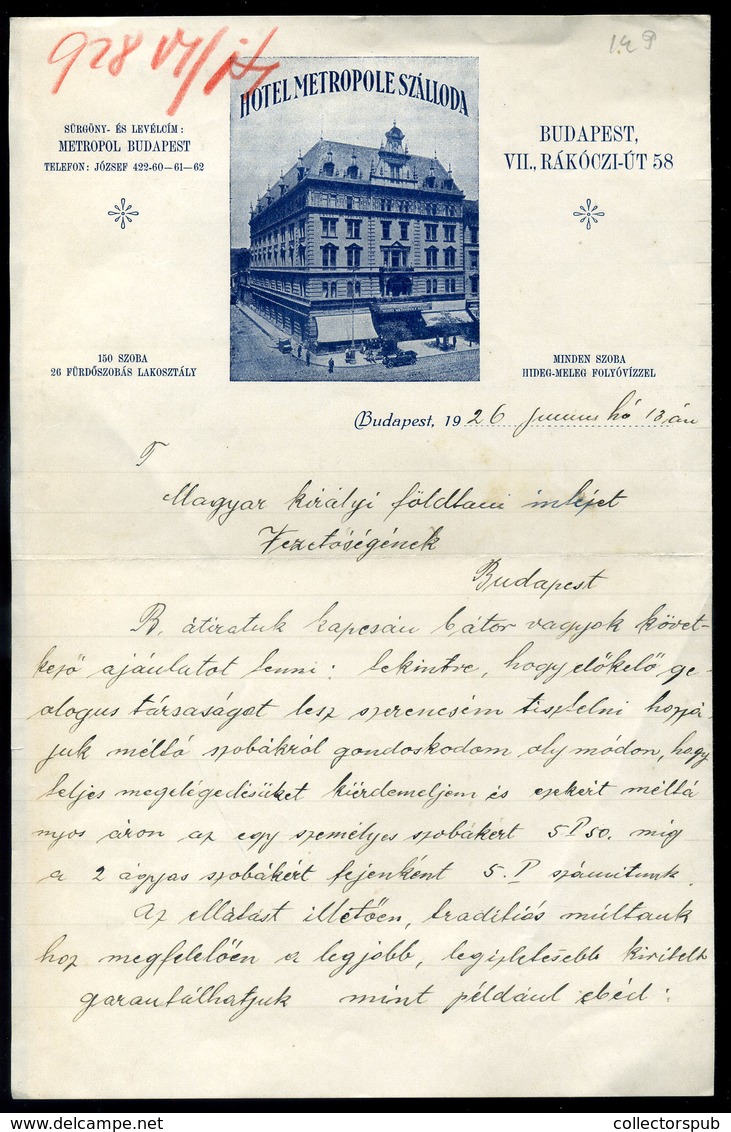 928
HOTEL METROPOLE SZÁLLODA
SÜRGÖNY- ÉS LEVÉLCÍM:
METROPOL BUDAPEST
TELEFON: JÓZSEF 422-60—61—62
BUDAPEST,
VII., RÁKÓCZI-ÚT 58
150 SZOBA
26 FÜRDŐSZOBÁS LAKOSZTÁLY
MINDEN SZOBA
HIDEG-MELEG FOLYÓVÍZZEL
Budapest, 1926 junius hó 13án
T
Magyar királyi földtani intéjet
Vezetőségének
Budapest
B. átiratuk kapcsán bátor vagyok követ-
kező ajánlatot tenni: tekintve, hogy előkelő ge-
ologus társaságot lesz szerencsém tisztelni hozzá
juk méltó szobákról gondoskodom oly módon, hogy
teljes megelégedésüket kiérdemeljem és ezekért méltá
nyos áron az egy személyes szobákért 5P50. mig
a 2 ágyas szobákért fejenként 5.P számitunk.
Az ellátást illetően, traditiós múltunk
hoz megfelelően a legjobb, legizletesebb kivitelt
garantálhatjuk mint például ebéd:
collectorspub